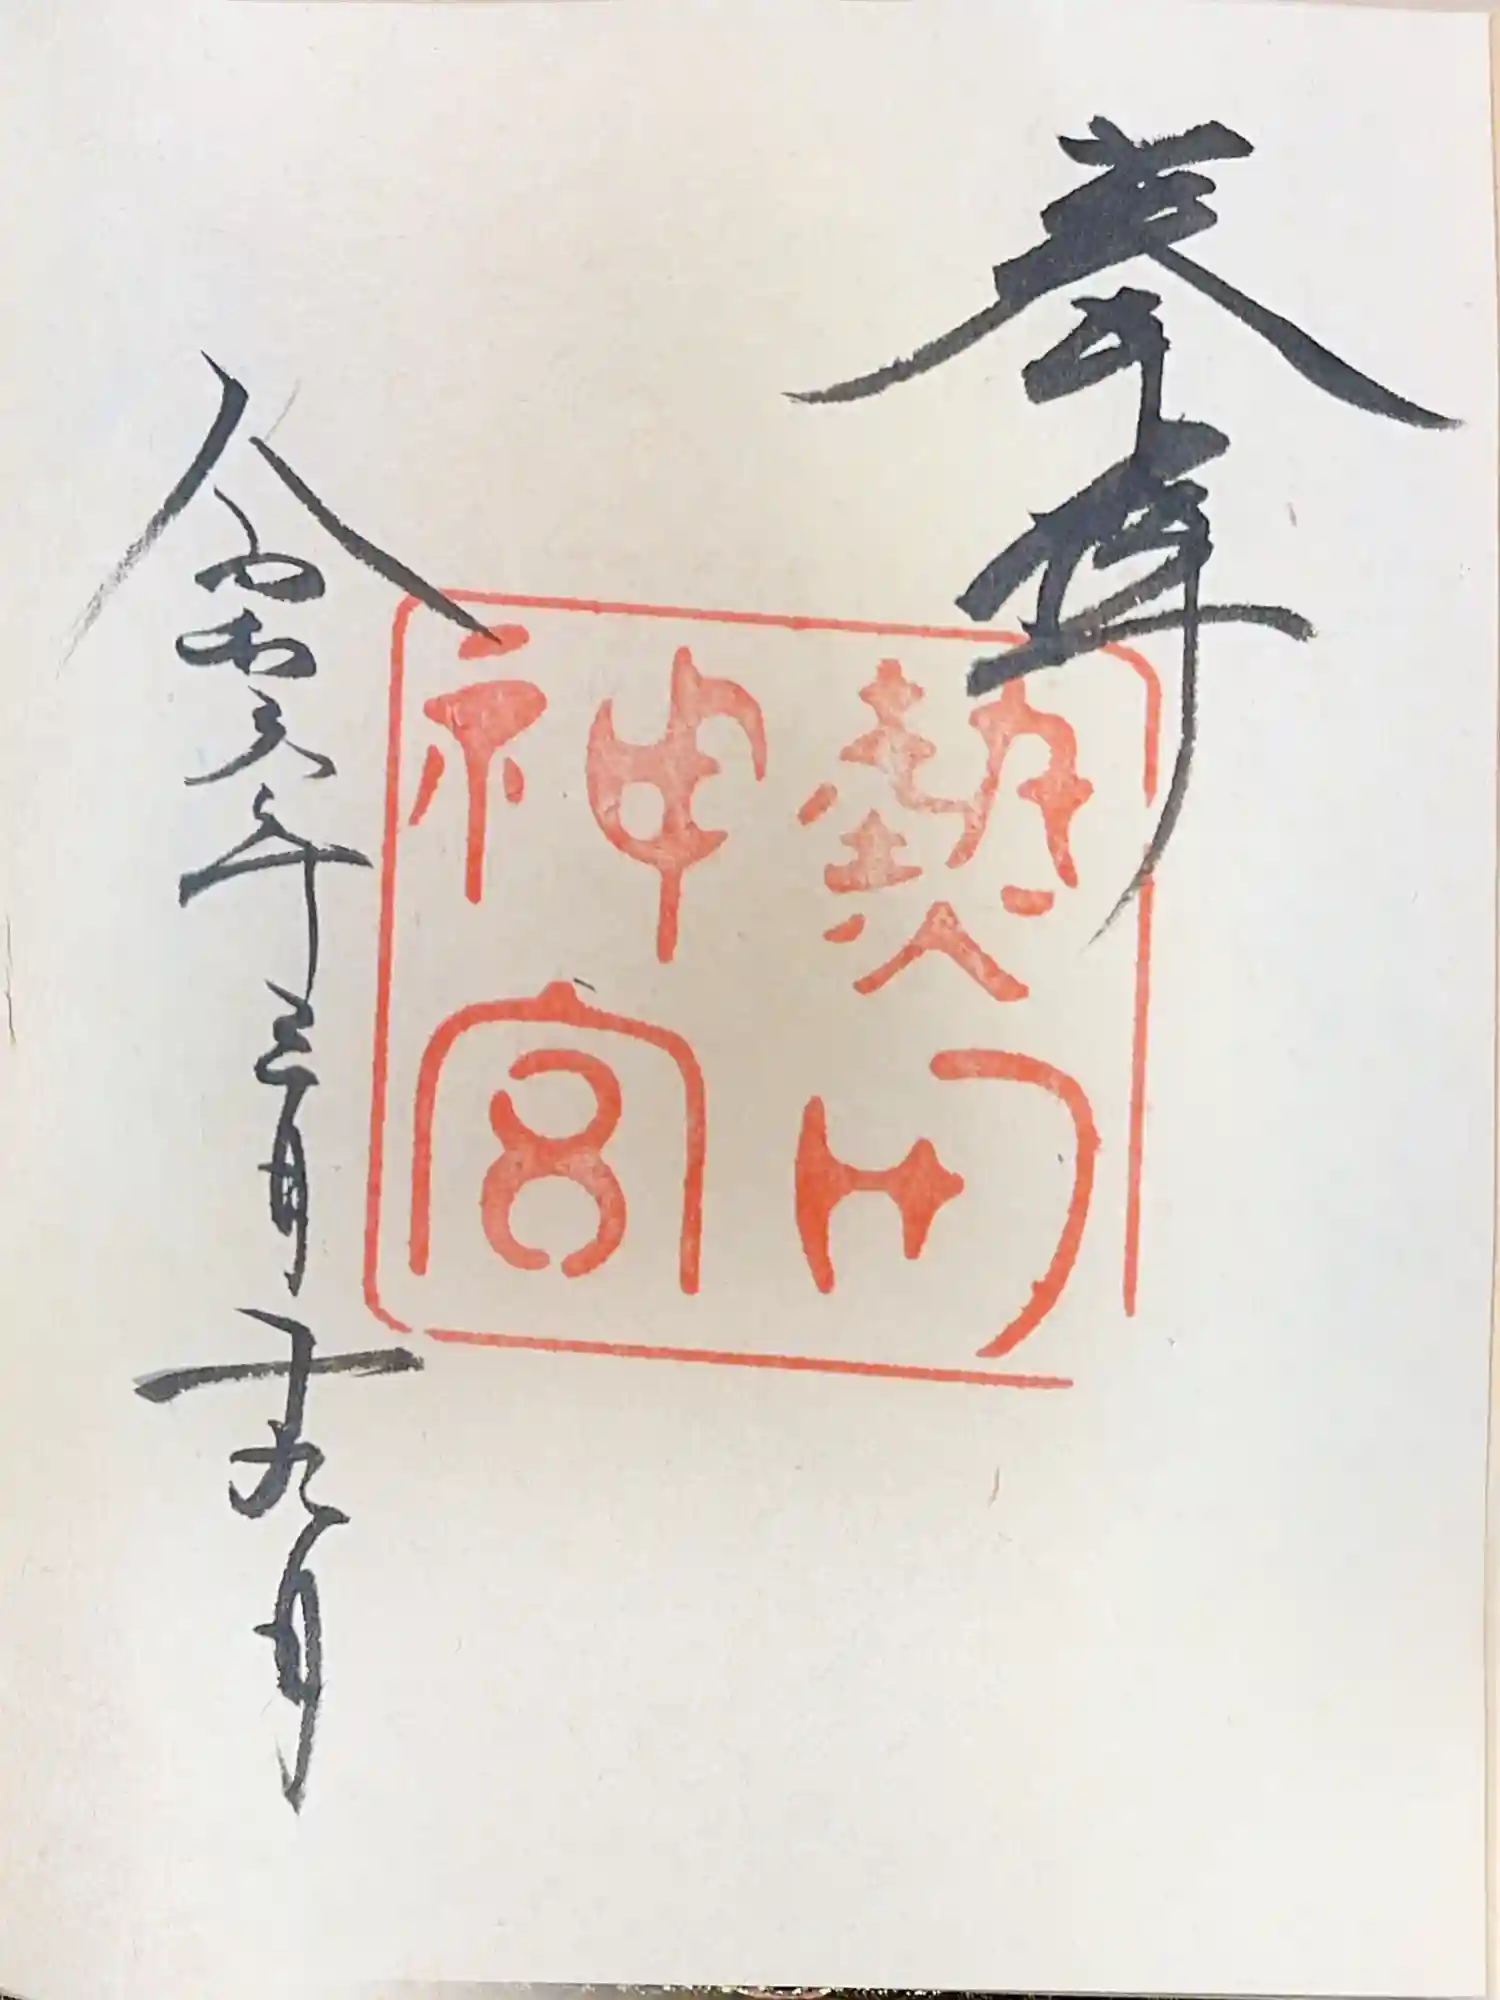 奉拝
熱田
神宮
令和六年三月十九日